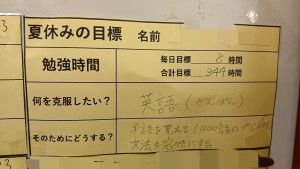 夏休みの目標 名前
勉強時間
毎日目標 8 時間
合計目標 344 時間
何を克服したい？
英語(ぜんぱん)
そのためにどうする？
単語を覚える(1000語
文法を完ぺきにする